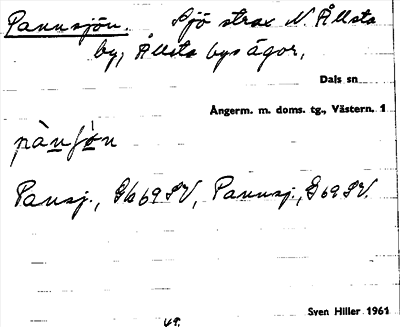 Pannsjön. Sjö strax N. Ållsta
by, Ållsta bys ägor.
Dals sn
Ångerm. m. doms. tg., Västern. 1
pànʃö̀n
Pansj., Gb 69 SV, Pannsj., G 69 SV.
Sven Hiller 1961